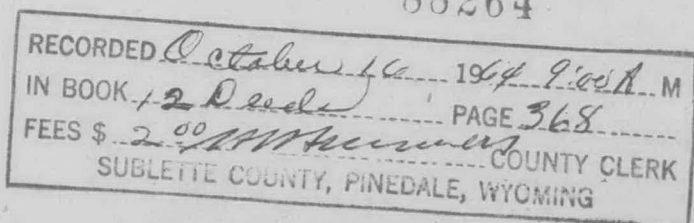 RECORDED October 16 1964 9:00 A M
IN BOOK 12 Deeds PAGE 368
FEES $ 2.00 COUNTY CLERK
SUBLETTE COUNTY, PINEDALE, WYOMING